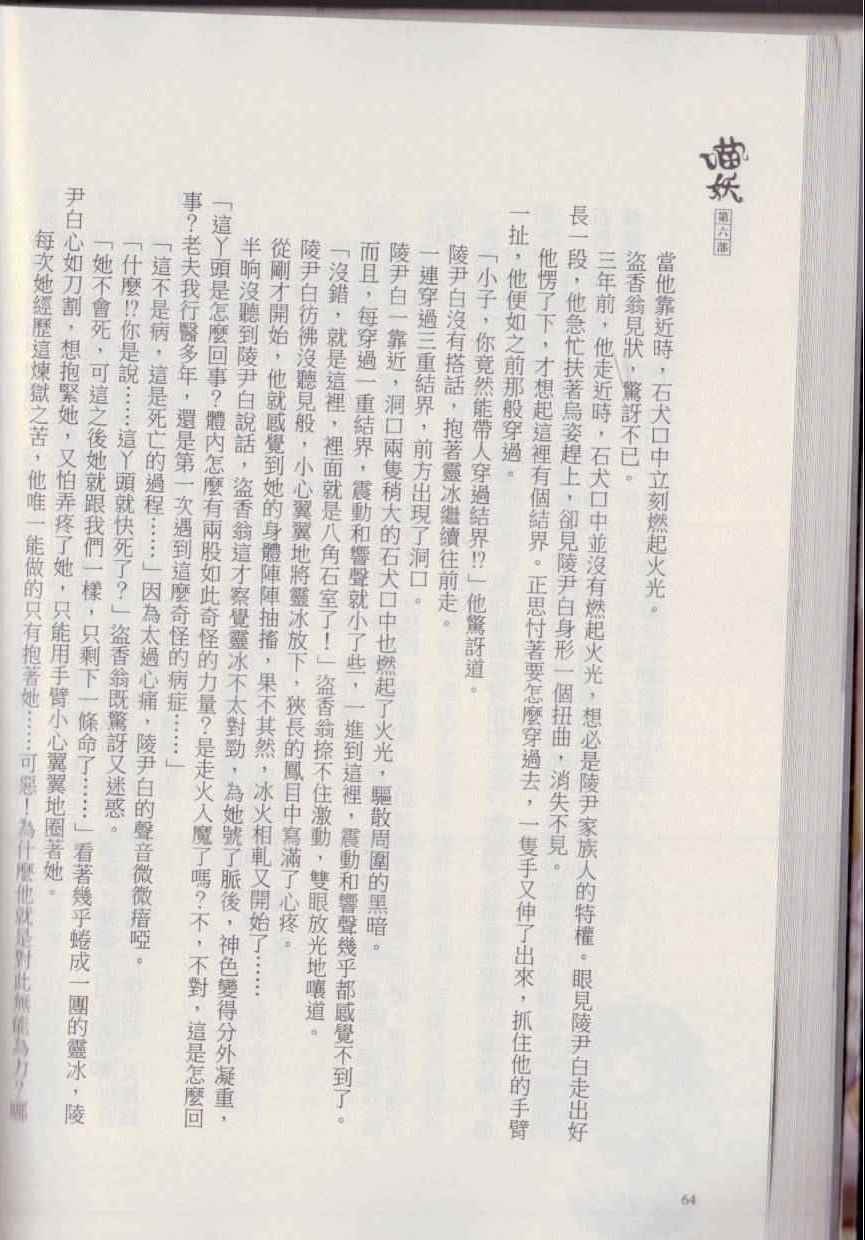 貓妖
第六部
當他靠近時，石犬口中立刻燃起火光。
盜香翁見狀，驚訝不已。
三年前，他走近時，石犬口中並沒有燃起火光，想必是陵尹家族人的特權。眼見陵尹白走出好
長一段，他急忙扶著烏姿趕上，卻見陵尹白身形一個扭曲，消失不見。
他愣了下，才想起這裡有個結界。正思忖著要怎麼穿過去，一隻手又伸了出來，抓住他的手臂
一扯，他便如之前那般穿過。
「小子，你竟然能帶人穿過結界!?」他驚訝道。
陵尹白沒有搭話，抱著靈冰繼續往前走。
一連穿過三重結界，前方出現了洞口。
陵尹白一靠近，洞口兩隻稍大的石犬口中也燃起了火光，驅散周圍的黑暗。
而且，每穿過一重結界，震動和響聲就小了些，一進到這裡，震動和響聲幾乎都感覺不到了。
「沒錯，就是這裡，裡面就是八角石室了！」盜香翁捺不住激動，雙眼放光地嚷道。
陵尹白彷彿沒聽見般，小心翼翼地將靈冰放下，狹長的鳳目中寫滿了心疼。
從剛才開始，他就感覺到她的身體陣陣抽搐，果不其然，冰火相軋又開始了……
半晌沒聽到陵尹白說話，盜香翁這才察覺靈冰不太對勁，為她號了脈後，神色變得分外凝重，
「這丫頭是怎麼回事？體內怎麼有兩股如此奇怪的力量？是走火入魔了嗎？不，不對，這是怎麼回
事？老夫我行醫多年，還是第一次遇到這麼奇怪的病症……」
「這不是病，這是死亡的過程……」因為太過心痛，陵尹白的聲音微微瘖啞。
「什麼!?你是說……這丫頭就快死了？」盜香翁既驚訝又迷惑。
「她不會死，可這之後她就跟我們一樣，只剩下一條命了……」看著幾乎蜷成一團的靈冰，陵
尹白心如刀割，想抱緊她，又怕弄疼了她，只能用手臂小心翼翼地圈著她。
每次她經歷這煉獄之苦，他唯一能做的只有抱著她……可惡！為什麼他就是對此無能為力？哪
64